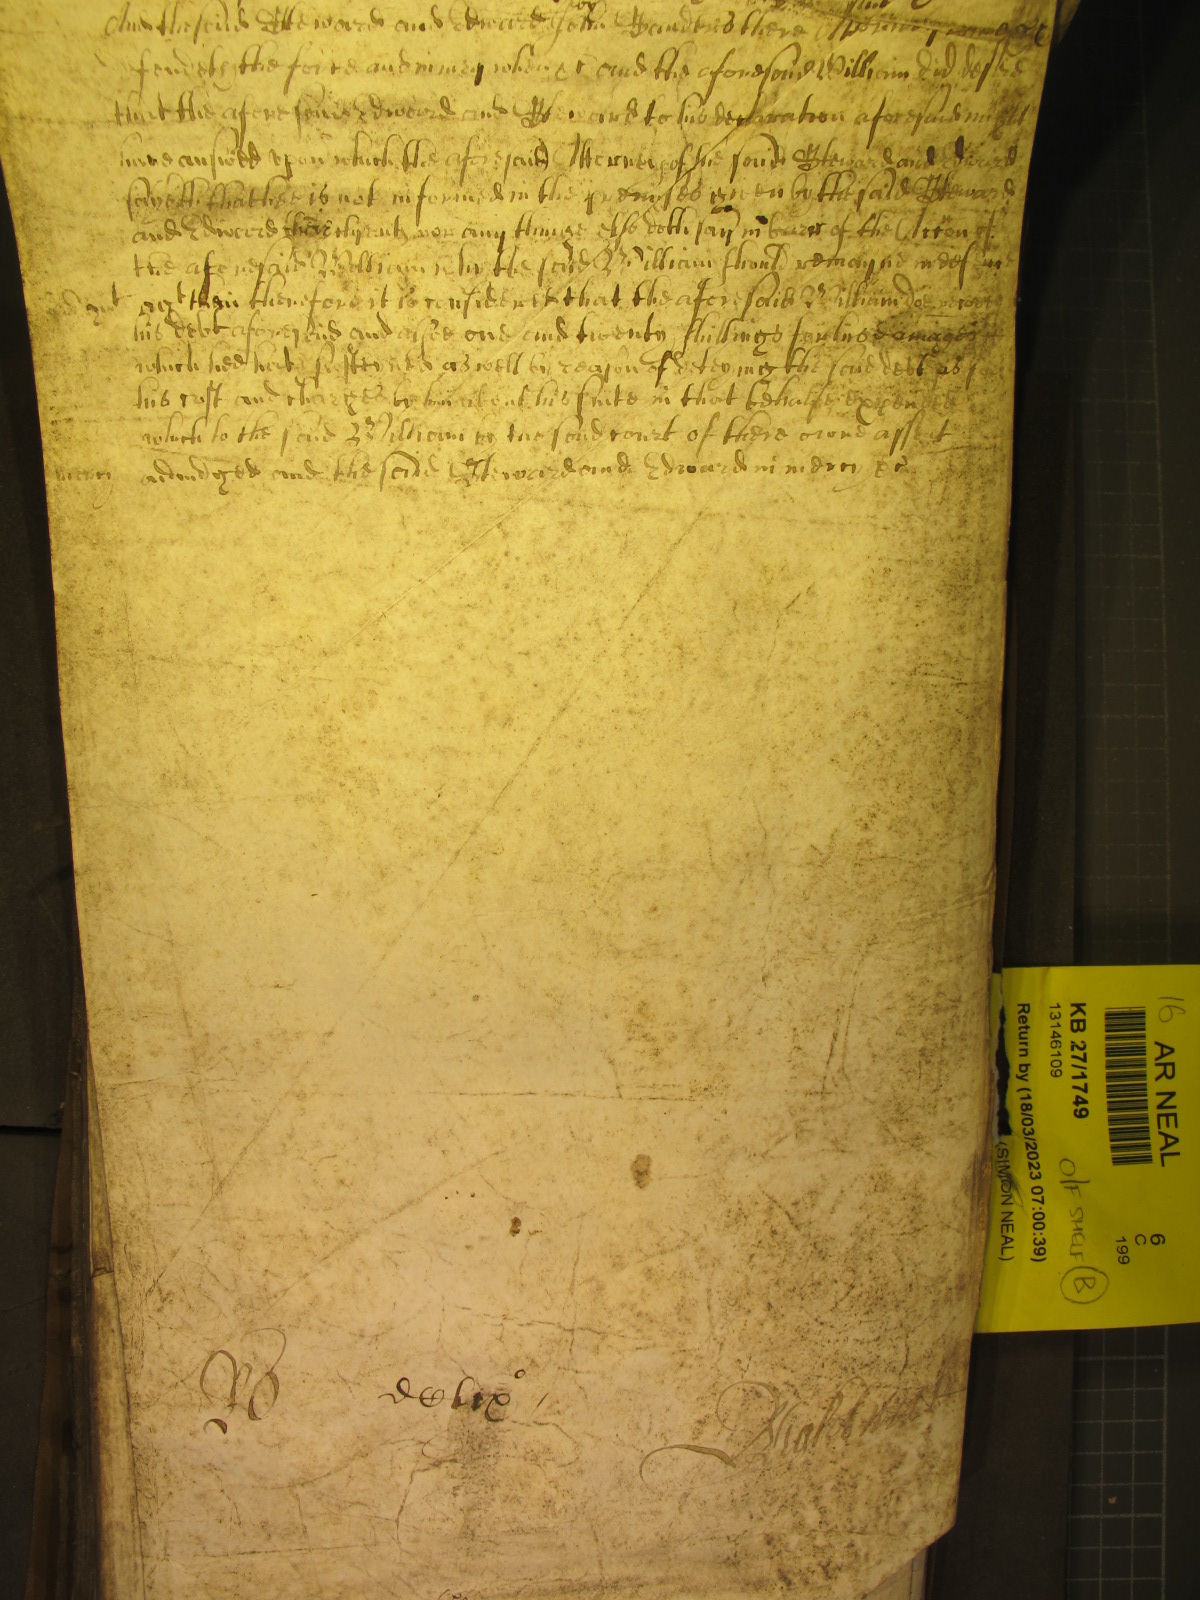 And the said Steward and Edward by John Saunders there Attorney
fendeth the force and iniury when &c and the aforesaid William did desire
that the aforesaid Edward and Steward to his declaration aforesaid might
have answed upon which the aforesaid Attorney of the said Steward and Edward
sayeth that hee is not informed in the premyses given by the said Steward
and Edward nor any thinge else doth say in barr of the Accon of
the aforesaid William why the said William should remayne
agt them therefore it is considered that the aforesaid William doe recover
his debt aforesaid and alsoe one and twenty shillings for his damages
which hee hath susteyned as well by reason of deteying the said debt as for
his cost and charges by him about his suite in that behalfe expended
which to the said William by the said court of there owne assent
mercy adiudged and the said Steward and Edward in mercy &c
16 AR NEAL
KB 27/1749
13146109
Return by (18/03/2023 07:00:39)
(SIMON NEAL)
6
C
199
O/F SHELF B